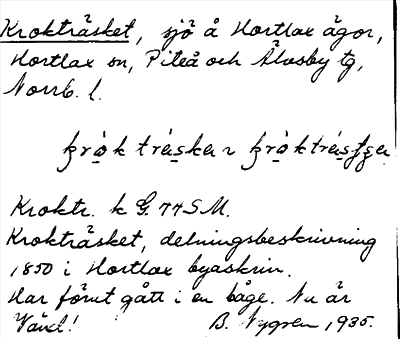 Krokträsket, sjö å Hortlax ägor,
Hortlax sn, Piteå och Älvsby tg,
Norrb. l.
krok träsket
Kroktr. k G. 77 S M.
Krokträsket, delningsbeskrivning
1850 i Hortlax byaskrin.
Har förut gått i en båge. Nu är
Vänd! B. Nygren, 1935.